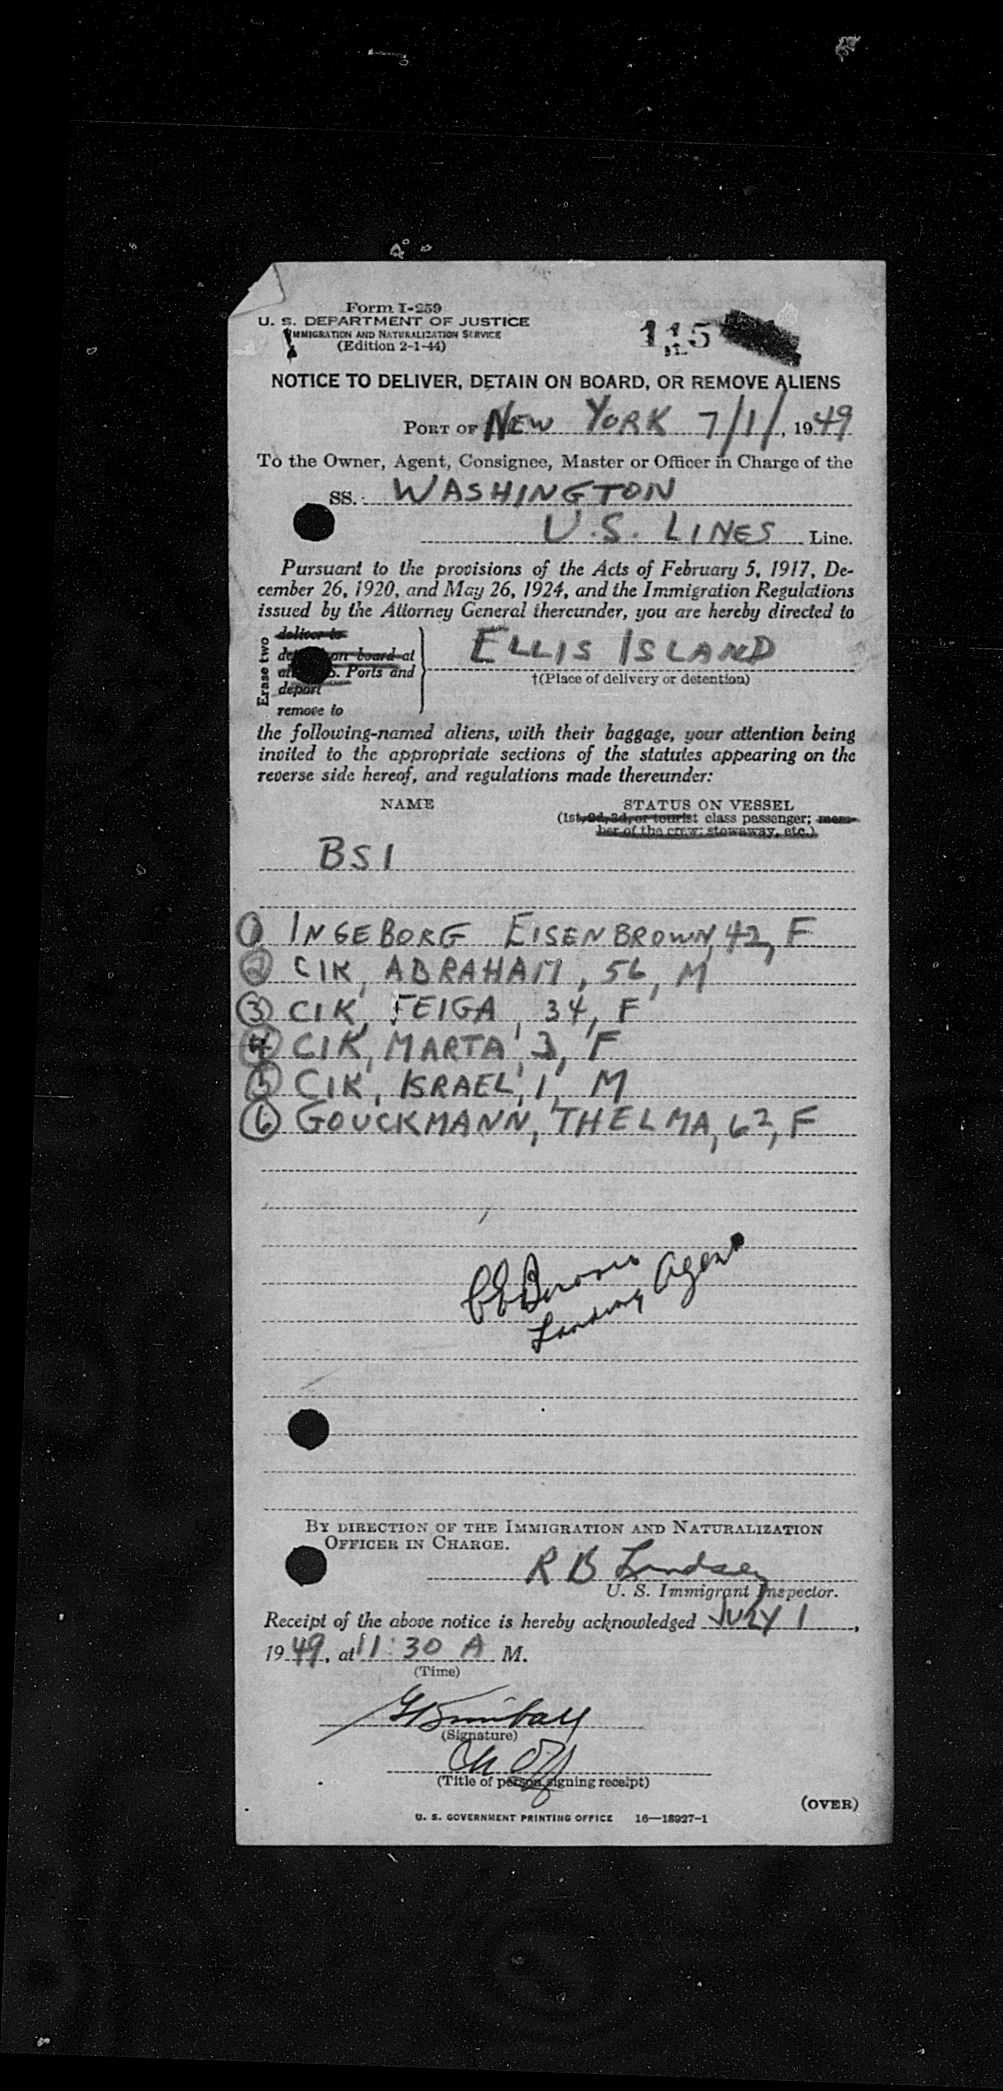 Form I-259
U. S. DEPARTMENT OF JUSTICE
IMMIGRATION AND NATURALIZATION SERVICE
(Edition 2-1-44)
115
NOTICE TO DELIVER, DETAIN ON BOARD, OR REMOVE ALIENS
PORT OF NEW YORK 7/1/, 1949
To the Owner, Agent, Consignee, Master or Officer in Charge of the
SS. WASHINGTON
U.S. LINES Line.
Pursuant to the provisions of the Acts of February 5, 1917, De-
cember 26, 1920, and May 26, 1924, and the Immigration Regulations
issued by the Attorney General thereunder, you are hereby directed to
Erase two
deliver to
on board at
Ports and
deport
remove to
ELLIS ISLAND
†(Place of delivery or detention)
the following-named aliens, with their baggage, your attention being
invited to the appropriate sections of the statutes appearing on the
reverse side hereof, and regulations made thereunder:
NAME STATUS ON VESSEL
(1st, 2d, 3d, or tourist class passenger; mem-
ber of the crew; stowaway, etc.)
BSI
1 INGEBORG EISENBROWN, 42, F
2 CIK, ABRAHAM, 56, M
3 CIK, FEIGA, 34, F
4 CIK, MARTA, 3, F
5 CIK, ISRAEL, 1, M
6 GOUCKMANN, THELMA, 62, F
Landing Agent
BY DIRECTION OF THE IMMIGRATION AND NATURALIZATION
OFFICER IN CHARGE.
R B Lindsey
U. S. Immigrant Inspector.
Receipt of the above notice is hereby acknowledged JULY 1,
1949, at 11:30 A M.
(Time)
(Signature)
Ch Off
(Title of person signing receipt)
(OVER)
U. S. GOVERNMENT PRINTING OFFICE 16—18927-1